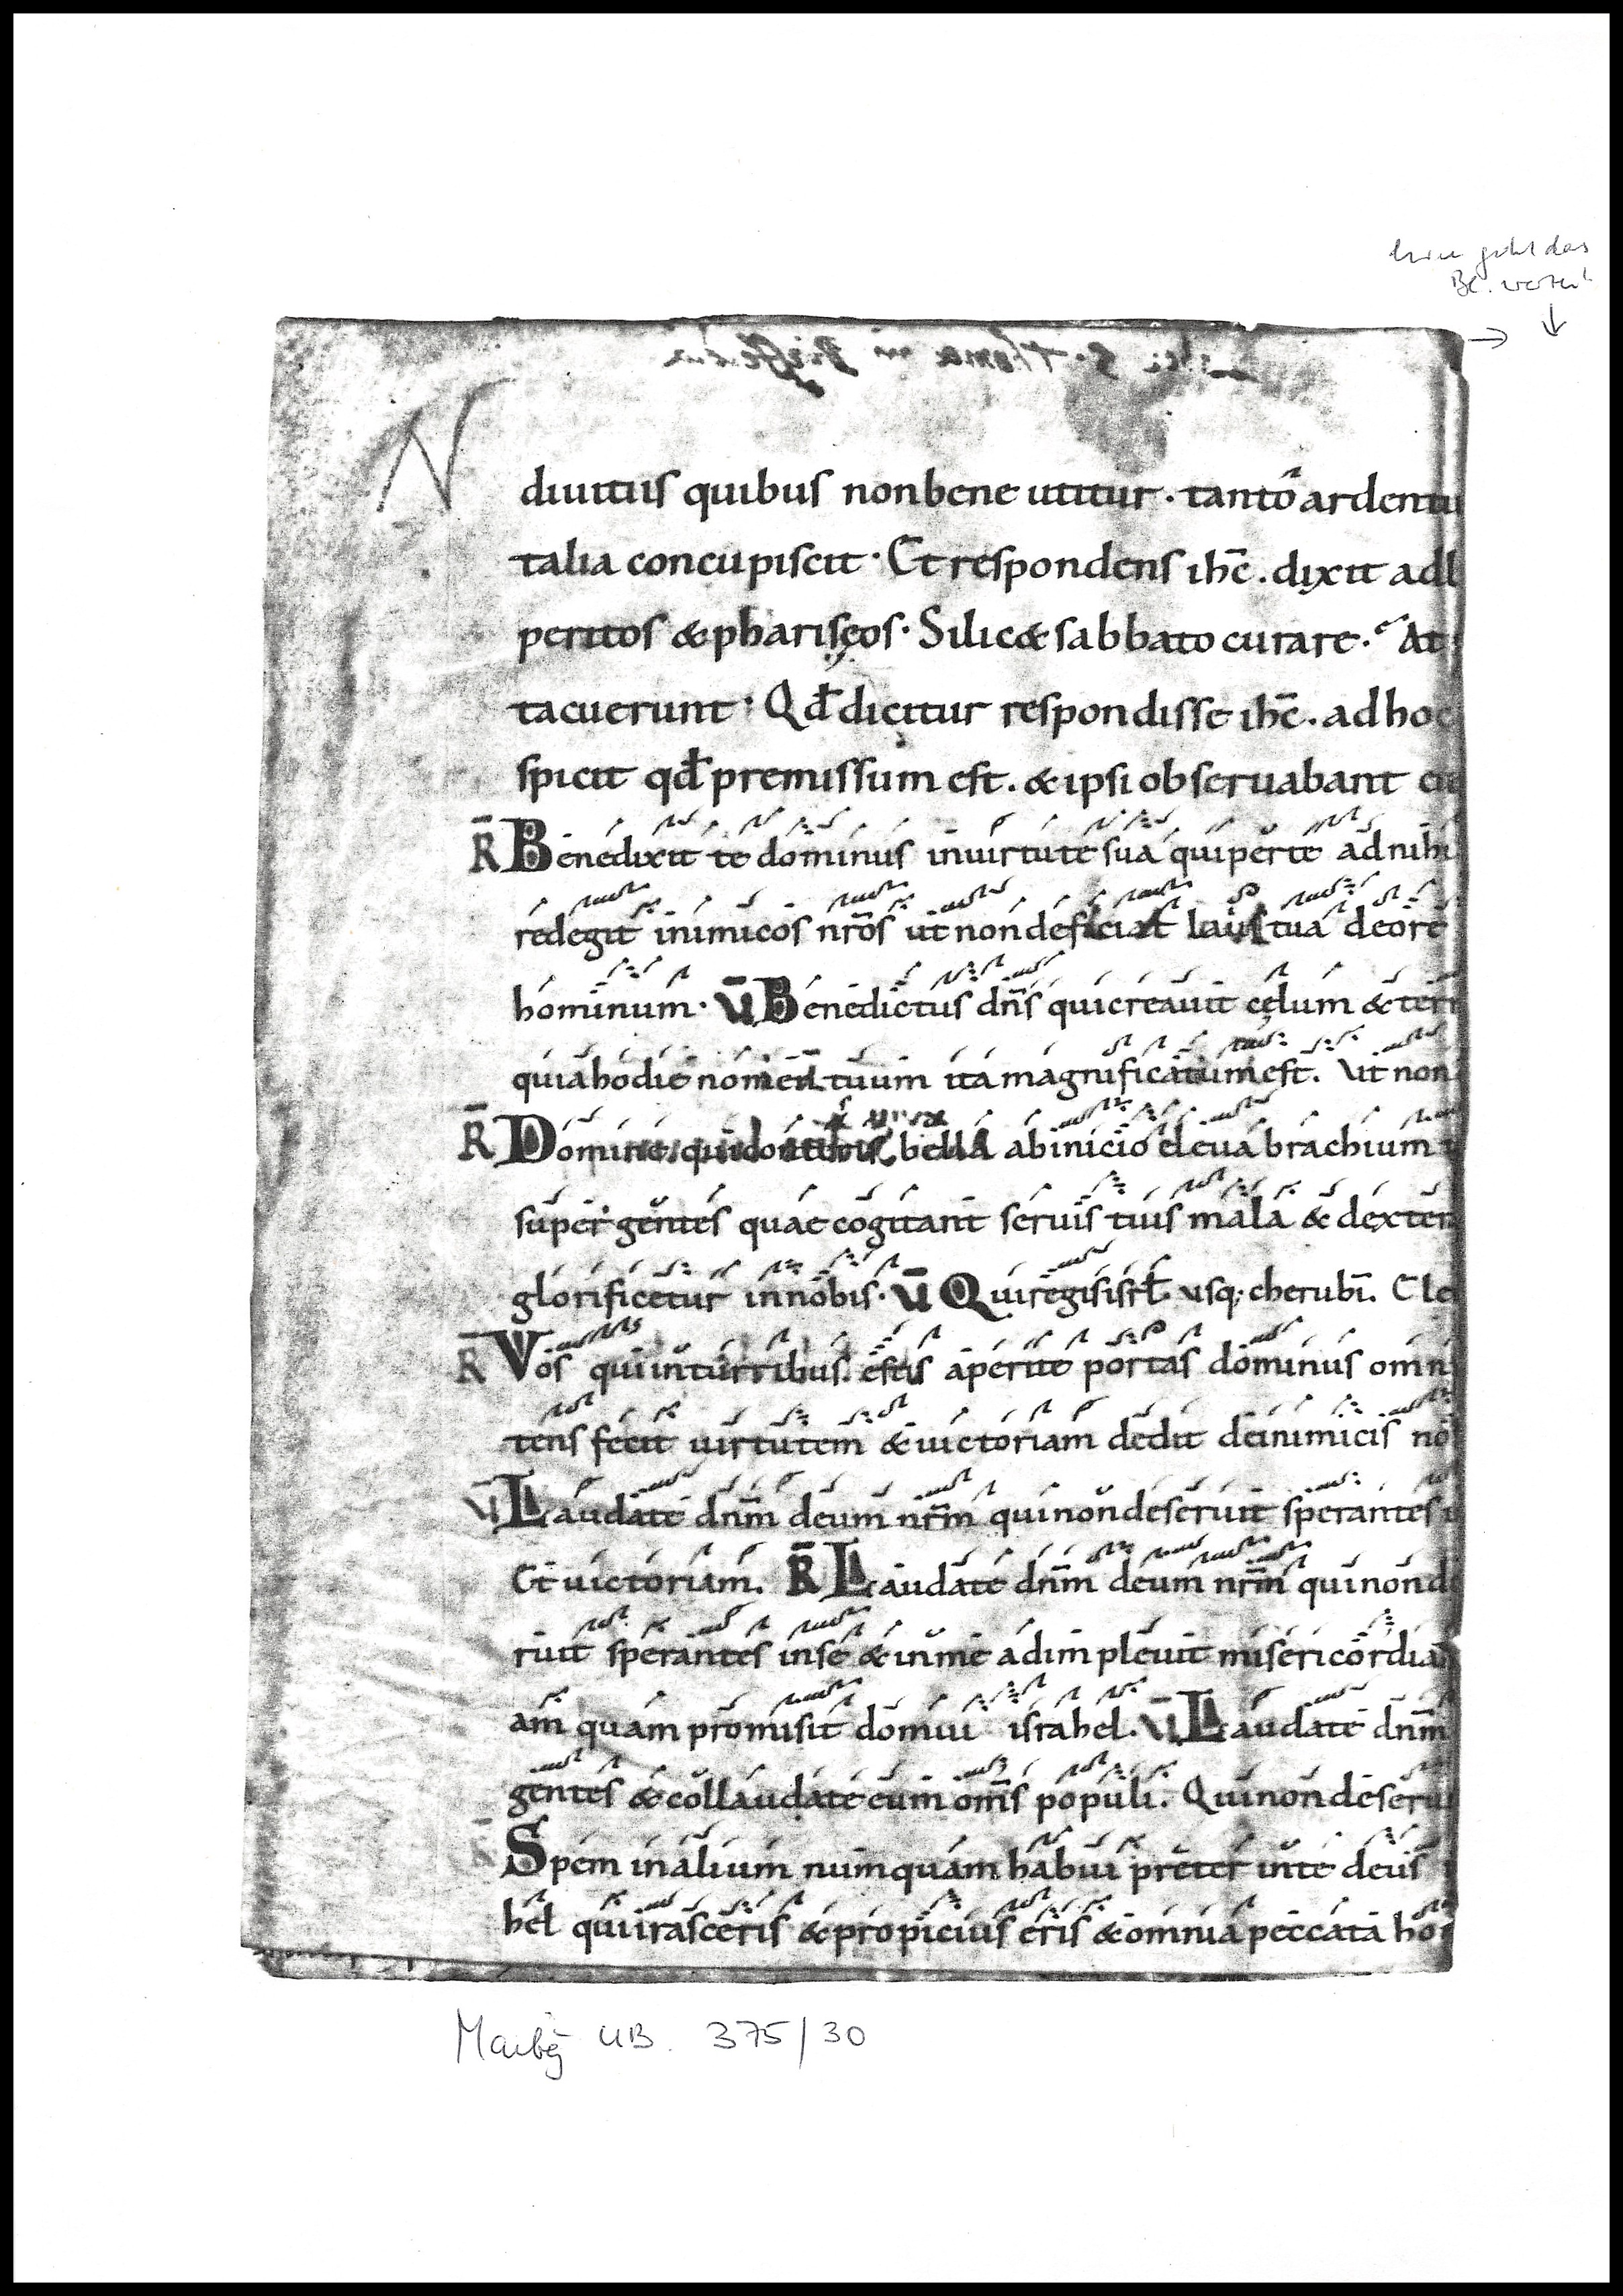 N
diuitiis quibus non bene utitur · tanto ardentiu
talia concupiscit · Et respondens ihc̄ . dixit ad l
peritos & phariseos · Si licet sabbato curare . At
tacuerunt : Qđ dicitur respondisse ihc̄ . ad hoc
spicit qđ premissum est . & ipsi obseruabant eu
R̄ Benedixit te dominus in uirtute sua qui per te ad nihi
redegit inimicos nr̄os ut non deficiat laus tua de ore
hominum · V̄ Benedictus dn̄s qui creauit cęlum & terr
quia hodie nomen tuum ita magnificatum est . Ut non
R̄ Domine qui conteris bella ab inicio eleua brachium
super gentes quae cogitant seruis tuis mala & dextera
glorificetur in nobis · V̄ Qui regis isrł usq; cherubī . Ele
R̄ Vos qui in turribus estis aperite portas dominus omni
tens fecit uirtutem & uictoriam dedit de inimicis no
V̄ Laudate dnm̄ deum nrm̄ qui non deseruit sperantes
Et uictoriam . R̄ Laudate dnm̄ deum nrm̄ qui non de
ruit sperantes in se & in me adimpleuit misericordia
am quam promisit domui israhel . V̄ Laudate dnm̄
gentes & collaudate eum oms̄ populi . Qui non deseru
R̄ Spem in alium numquam habui preter in te deus
hel qui irasceris & propicius eris & omnia peccata ho
Marbg UB. 375/30